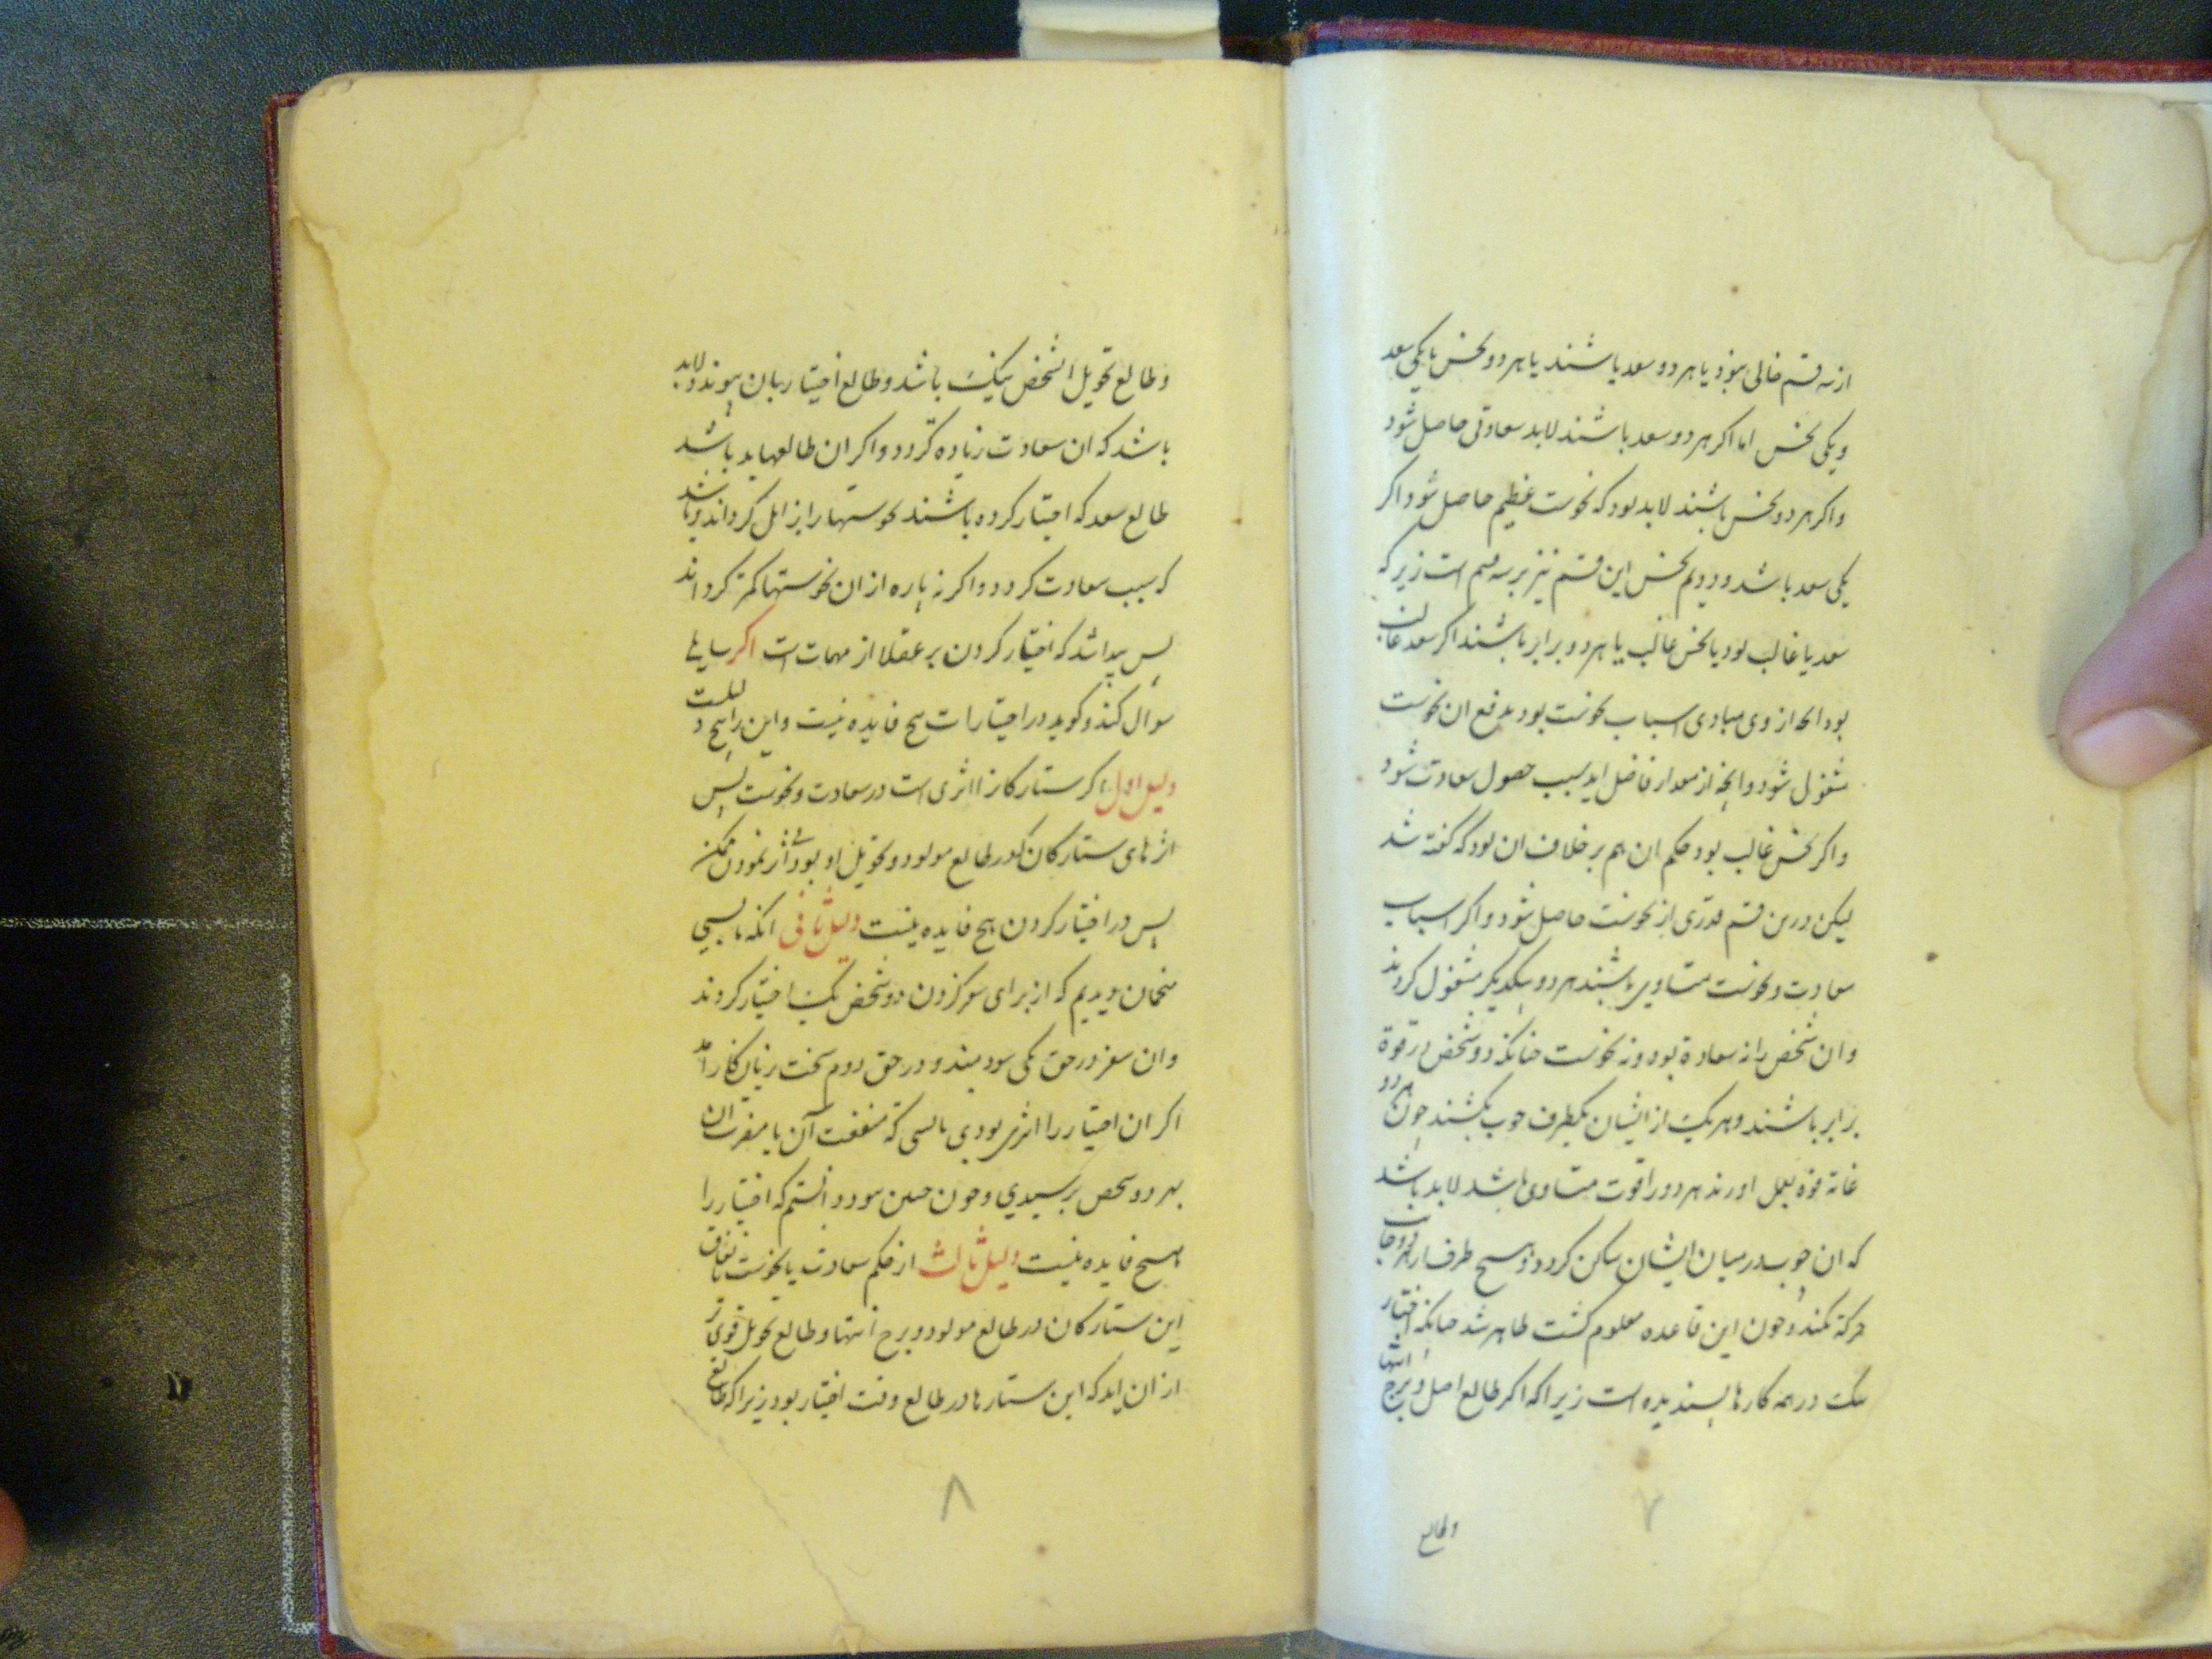 از سه قسم خالی نبود یا هر دو سعد باشند یا هر دو نحس یا یکی سعد
ویکی نحس اما اکر هر دو سعد باشند لابد سعادتی حاصل شود
واکر هر دو نحس باشند لابد بود که نحوست عظیم حاصل شود اکر
یکی سعد باشد ودویم نحس این قسم نیز بر سه قسم است زیرکه
سعد یا غالب بود یا نحس غالب یا هر دو برابر باشند اکر سعد غالب
بود انچه از وی مبادی اسباب نحوست بود بدفع ان نحوست
مشغول شود وانچه از مقدار فاضل اید سبب حصول سعادت شود
واکر نحس غالب بود حکم ان هم بر خلاف ان بود که کفته شد
لیکن درین قسم قدری از نحوست حاصل شود واکر اسباب
سعادت ونحوست متساوی باشند هر دو بیکدیکر مشغول کردند
وان شخص را نه سعادة بود ونه نحوست چنانکه دو شخص در قوة
برابر باشند وهر یک از ایشان یکطرف چوب بکشند چون هر دو
غایة قوة بعمل اورند هر دو را قوت متساوی باشد لابد باشد
که ان چوب در میان ایشان ساکن کردد وهیچ طرف از هر دو جانب
حرکة نکند وچون این قاعده معلوم کشت ظاهر شد چنانکه اختیار
نیک در همه کارها پسندیده است زیرا که اکر طالع اصل وبرج انتها
وطالع
وطالع تحویل انشخص نیک باشد وطالع اختیار بان پیوندد لابد
باشد که ان سعادت زیاده کردد واکر ان طالعها بد باشد
طالع سعد که اختیار کرده باشند نحوستها را زایل کرداند وباشد
که سبب سعادت کردد واکر نه پاره از ان نحوستها کمتر کرداند
پس پیدا شد که اختیار کردن بر عقلا از مهمات است اکر سایلی
سوال کند وکوید در اختیارات هیچ فایده نیست واین را پنج دلیلست
دلیل اول اکر ستارکانرا اثری است در سعادت ونحوست پس
اثرهای ستارکان که در طالع مولود وتحویل او بود بی اثر نمودن ممکن
پس در اختیار کردن هیچ فایده نیست دلیل ثانی انکه بسیی
منجمان دیدیم که از برای سفر کردن دو شخص یک اختیار کردند
وان سفر در حق یکی سودمند ودر حق دوم سخت زیان کار امد
اکر ان اختیار را اثری بودی بایستی که منفعت آن یا مضرت ان
بهر دو شخص برسیدی وچون چنین نبود دانستم که اختیار را
هیچ فایده نیست دلیل ثالث از حکم سعادت یا نحوست باتفاق
این ستارکان در طالع مولود وبرج انتها وطالع تحویل قوی تر
از ان اید که این ستارها در طالع وقت اختیار بود زیرا که طالع
۷
۸